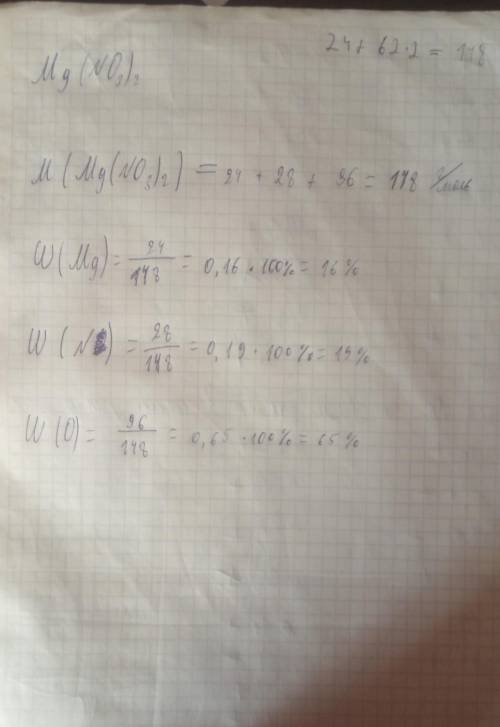 24 + 62·2 = 148
Mg(NO₃)₂
M(Mg(NO₃)₂) = 24 + 28 + 96 = 148 г/моль
W(Mg) = 24/148 = 0,16 · 100% = 16%
W(N) = 28/148 = 0,19 · 100% = 19%
W(O) = 96/148 = 0,65 · 100% = 65%